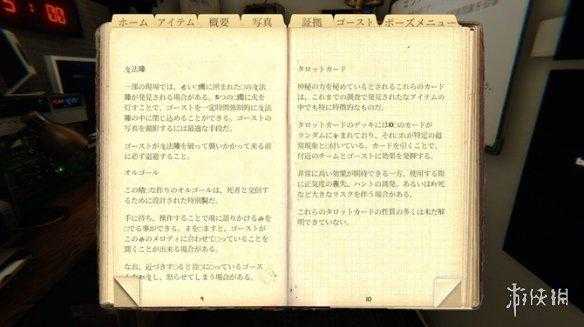 ホーム アイテム 概要 写真 証拠 ゴースト ポーズメニュー
法陣
一部の現場では、
が発見される場合がある。5つの
灯すことで、ゴーストを一定時間強制的に
陣の中に閉じ込めることができる。ゴーストの
写真を撮影するには最適な手段だ。
ゴーストが 法陣を破って襲いかかって来る前
に必ず退避すること。
オルゴール
この 作りのオルゴールは、死者と交信す
るために設計された特別製だ。
手に持ち、操作することで魂に語りかける
でる事ができる。 ゴーストが
この のメロディに合わせて っていることを
聞くことが出来る場合がある。
なお、近づきす ると っているゴース
し、怒らせてしまう場合がある。
9
タロットカード
神秘の力を秘めているとされるこれらのカード
は、これまでの調査で発見されたなアイテムの
中でも特に特徴的なものだ。
タロットカードのデッキには10 のカードが
ランダムに まれており、それ が特定の超
常現象と 付いている。カードを引くことで、
付近のチームとゴーストに効果を発揮する。
非常に高い効果が期待できる一方、使用する際
に正気度の喪失、ハントの誘発、あるいは死
など大きなリスクを伴う場合がある。
これらのタロットカードの性質の多くは未だ解
明できていない。
10
游侠网